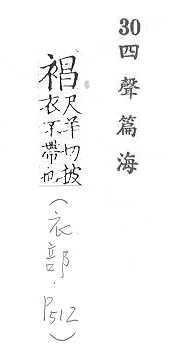 30 四聲篇海
裮 尺羊切披
衣不帶也
(衣部·P512)